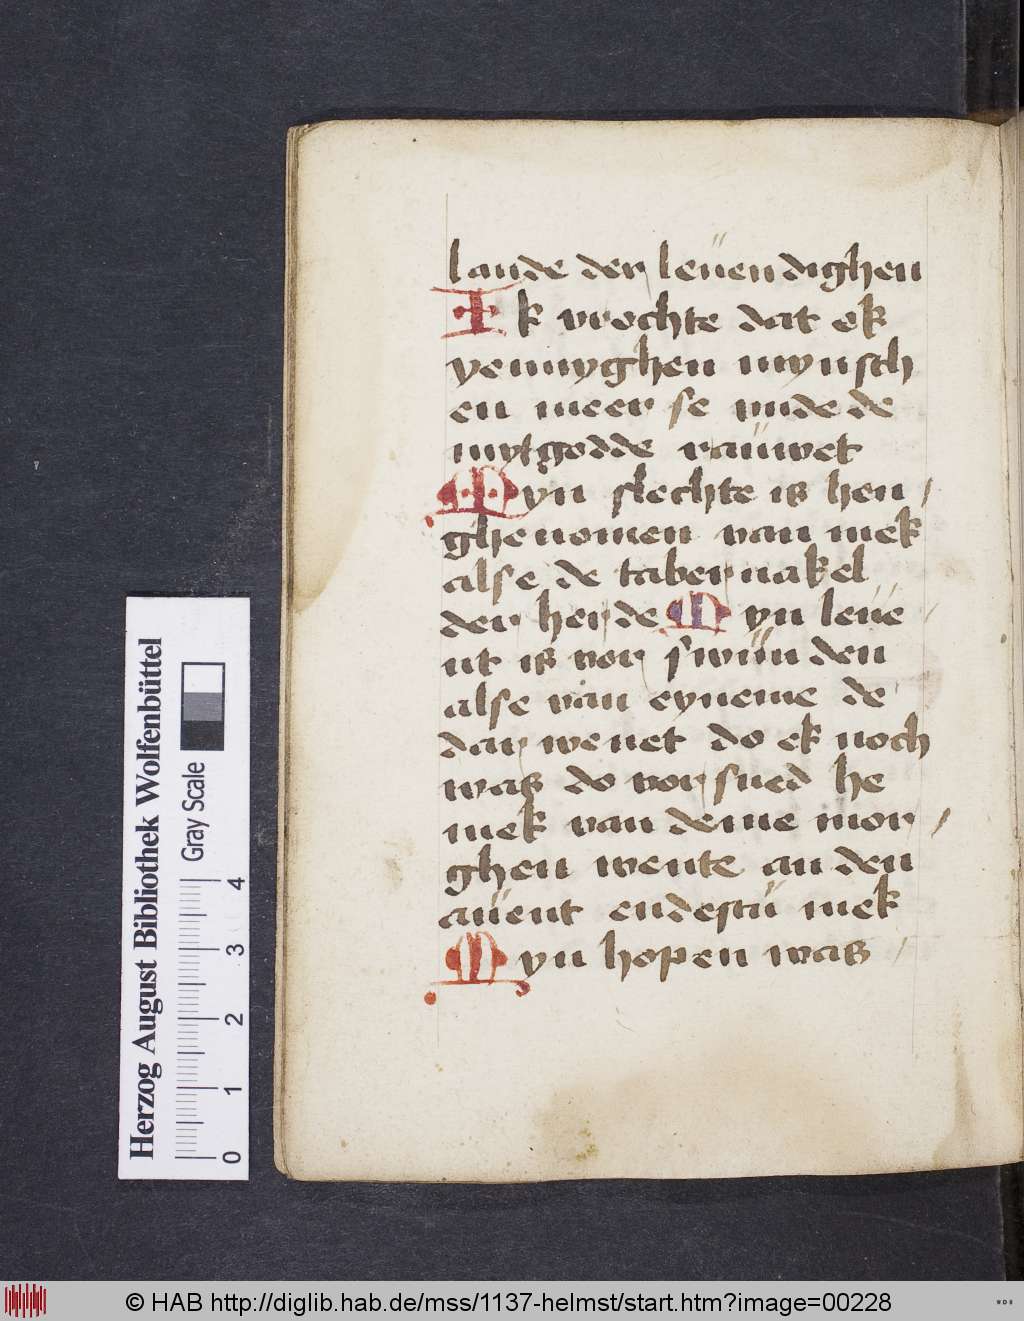 lande der leuen dighen
Ik vrochte dat ek
yennyghen mynsch
en meer se vnde de
mytgodde rauwet
Myn slechte is hen /
ghenomen van mek
alse de tabernakel
der herde Myn leue /
nt is vor swun den
alse van eyneme de
dar wenet do ek noch
was do vor sned he
mek van deme mor /
ghen wente an den
auent endestu mek
Myn hopen was /
Herzog August Bibliothek Wolfenbüttel
Gray Scale
0 1 2 3 4
© HAB http://diglib.hab.de/mss/1137-helmst/start.htm?image=00228